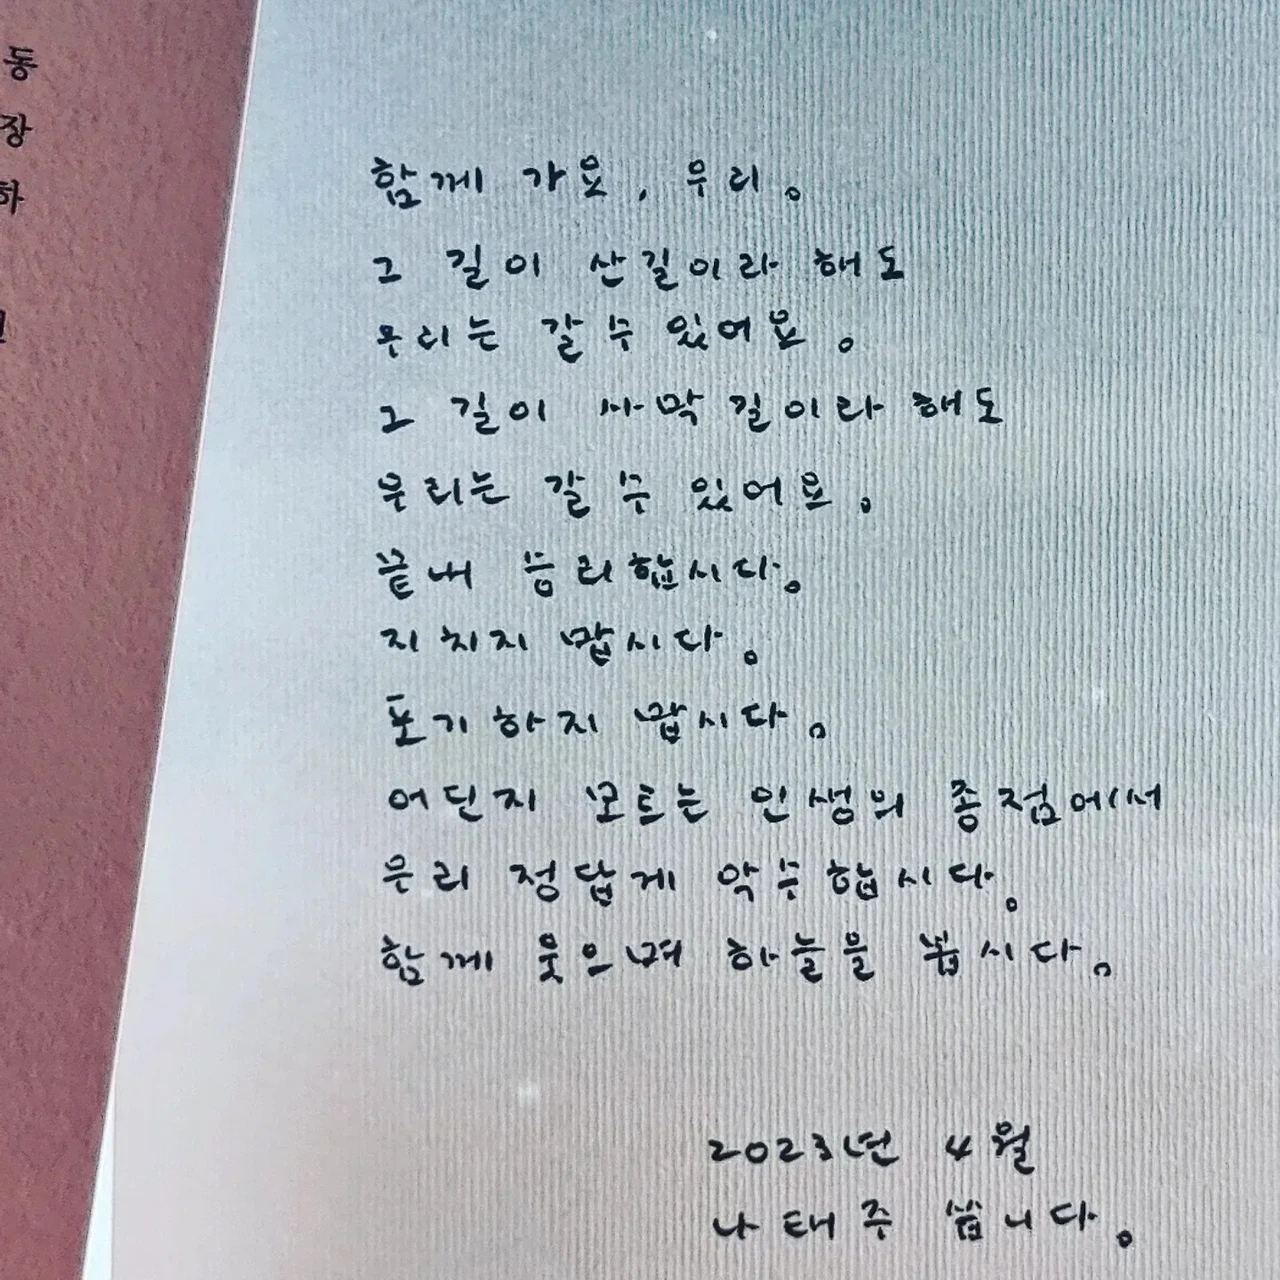 동
장
하
함께 가요, 우리.
그 길이 산길이라 해도
우리는 갈 수 있어요.
그 길이 사막길이라 해도
우리는 갈 수 있어요.
끝내 승리합시다.
지치지 맙시다.
포기하지 맙시다.
어딘지 모르는 인생의 종점에서
우리 정답게 악수합시다.
함께 웃으며 하늘을 봅시다.
2023년 4월
나태주 씁니다.